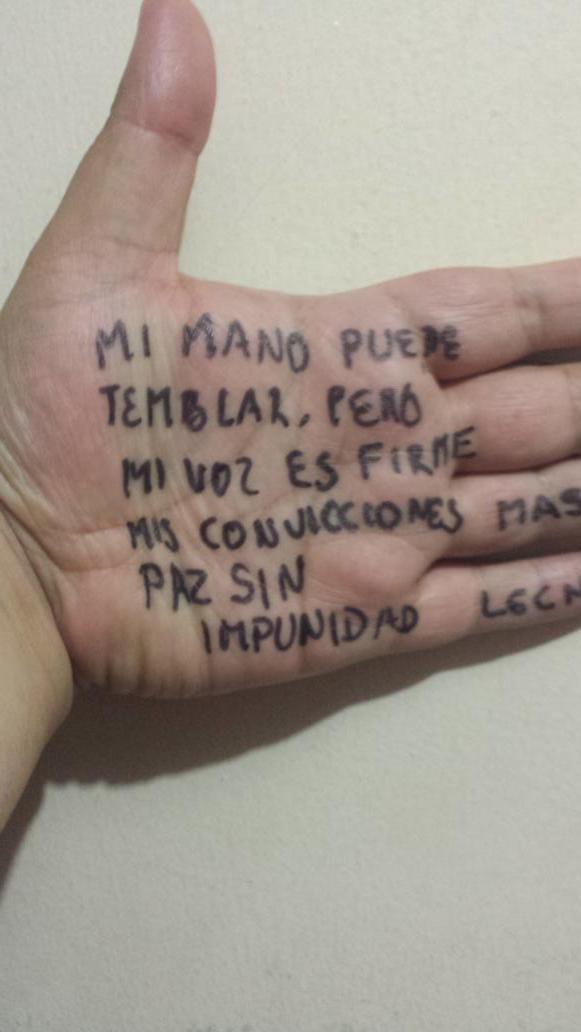 MI MANO PUEDE
TEMBLAR, PERO
MI VOZ ES FIRME
MIS CONVICCIONES MAS
PAZ SIN
IMPUNIDAD